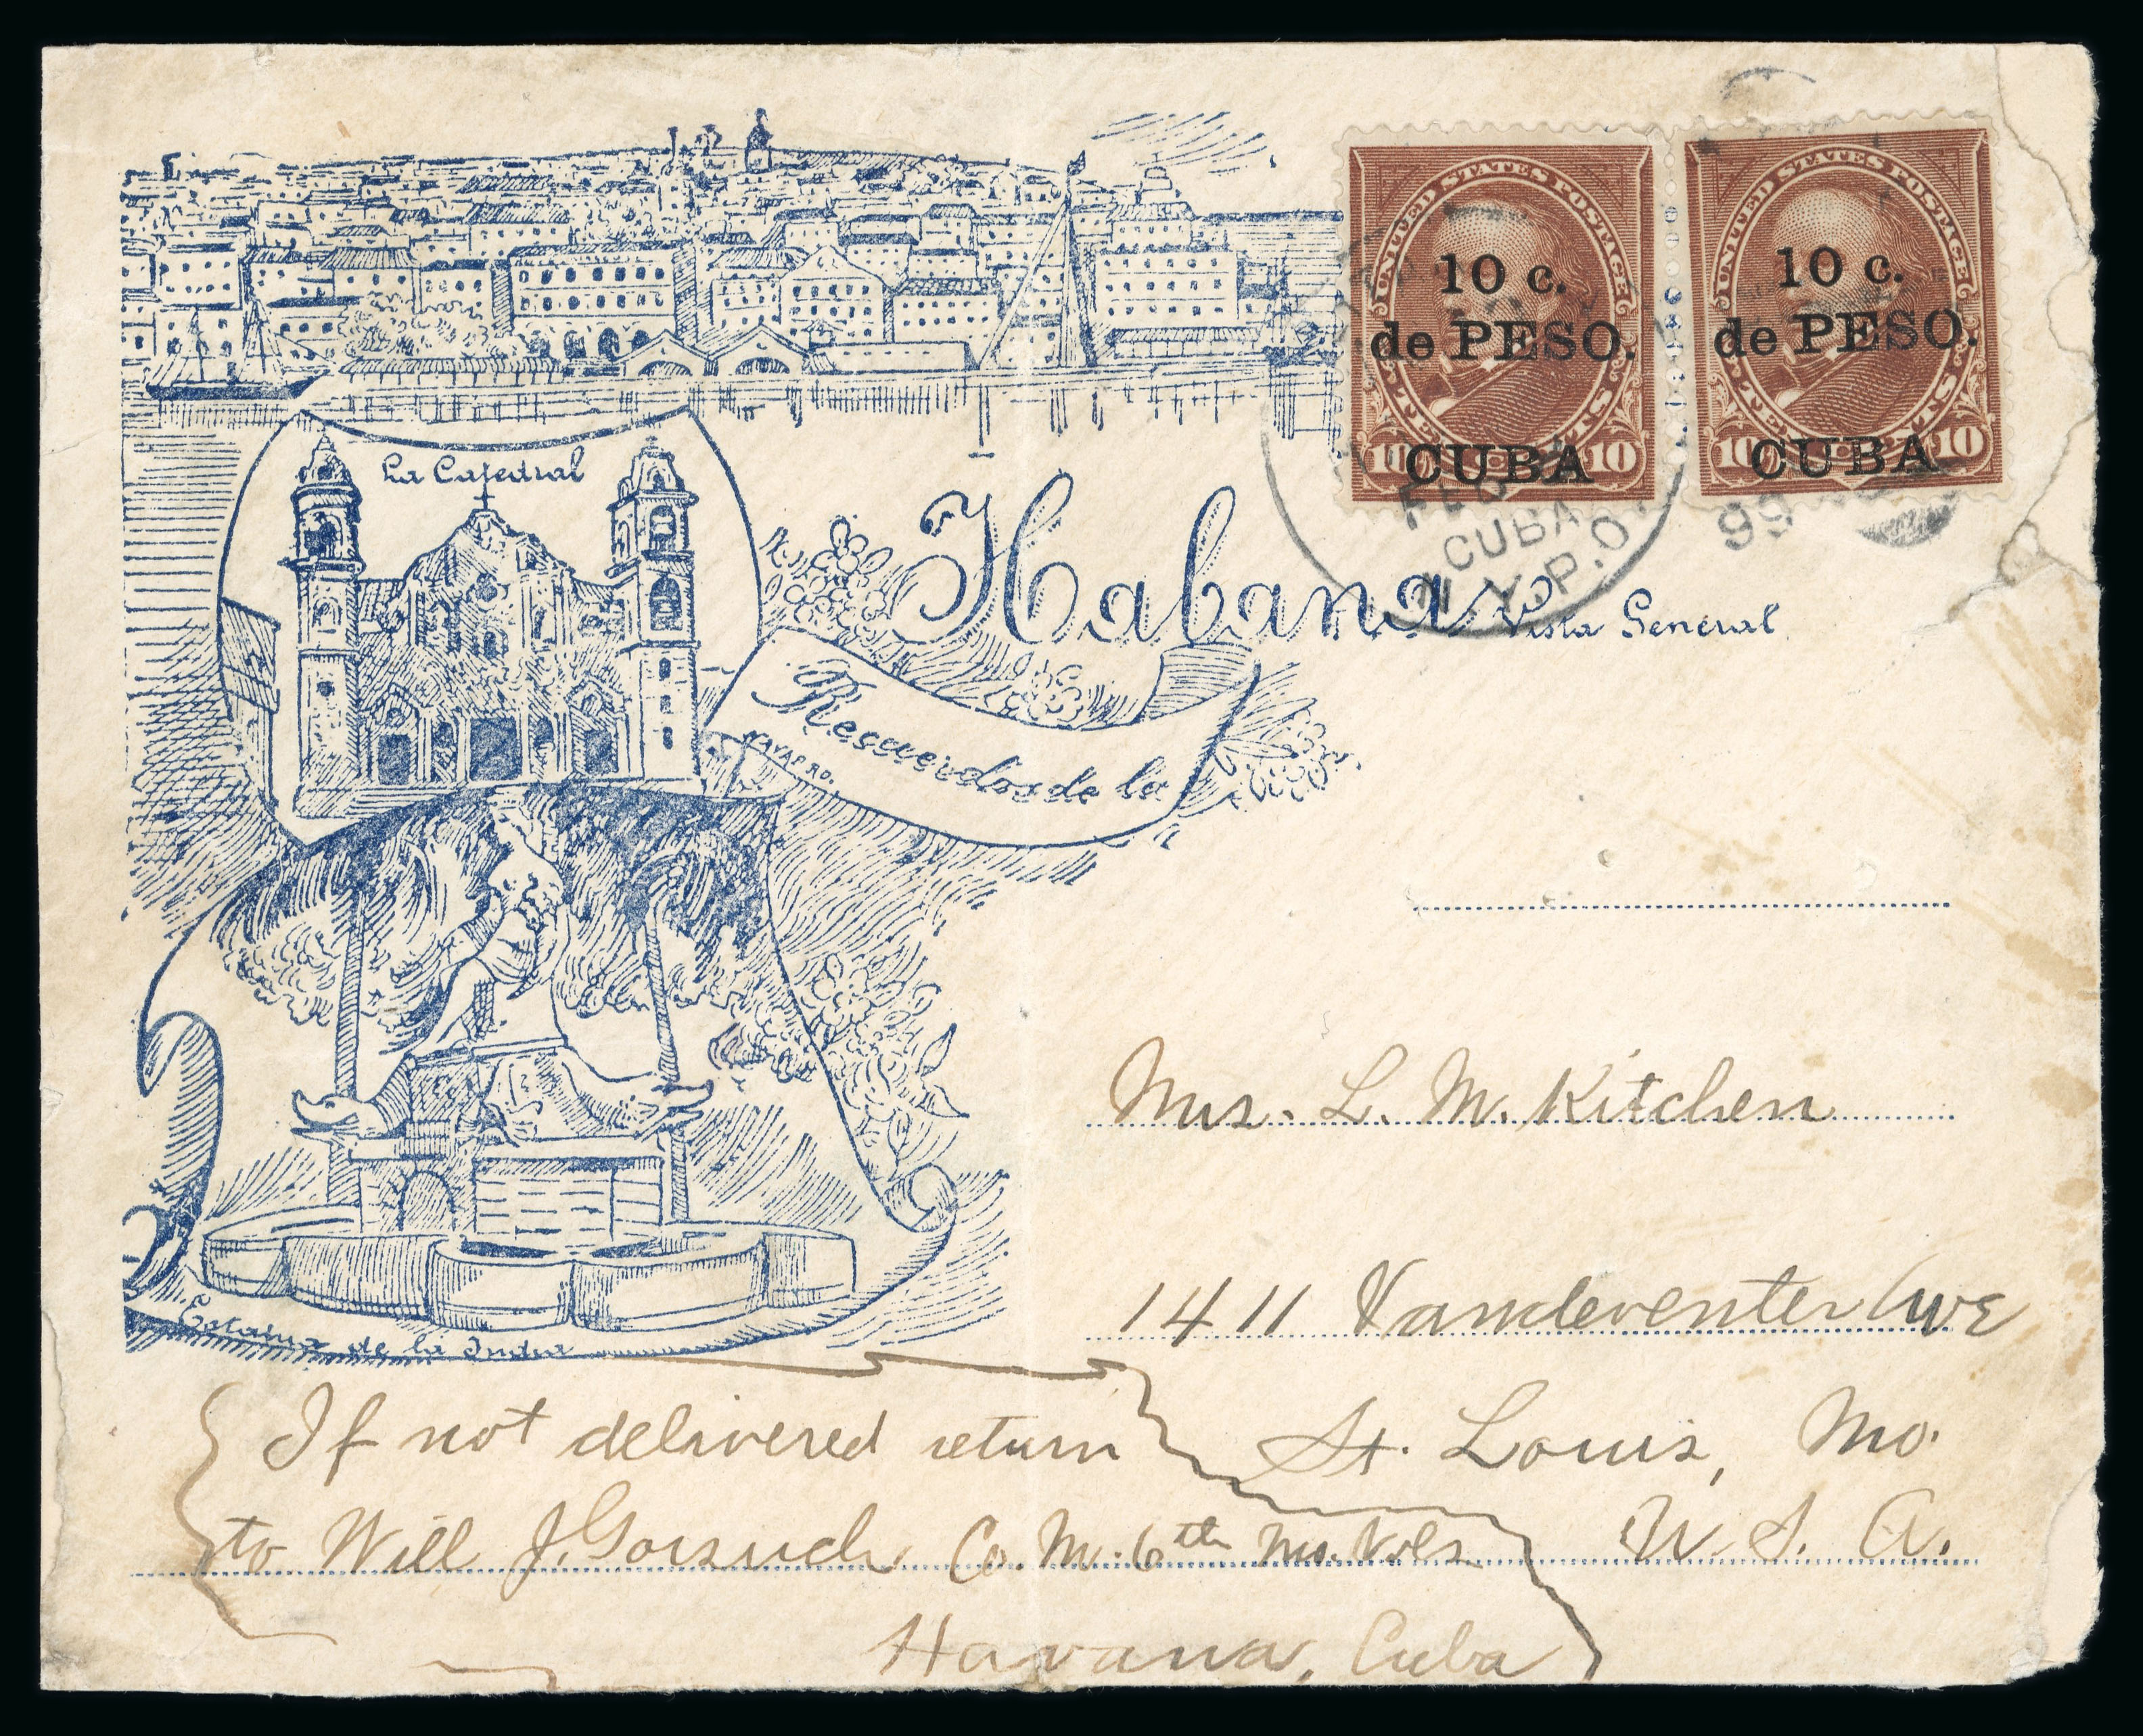 UNITED STATES POSTAGE
10 c.
de PESO.
CUBA
10 10
UNITED STATES POSTAGE
10 c.
de PESO.
CUBA
10 10
FEB
CUBA
N.Y.P.O.
99
La Catedral
Habana
Vista General
Recuerdos de la
NAVARRO.
Mrs. L. M. Kitchen
1411 Vandeventer Ave
St. Louis, Mo.
U. S. A.
Estatua de la India
If not delivered return
to Will J. Gorsuch Co. M. 6th Mo. Vols
Havana, Cuba